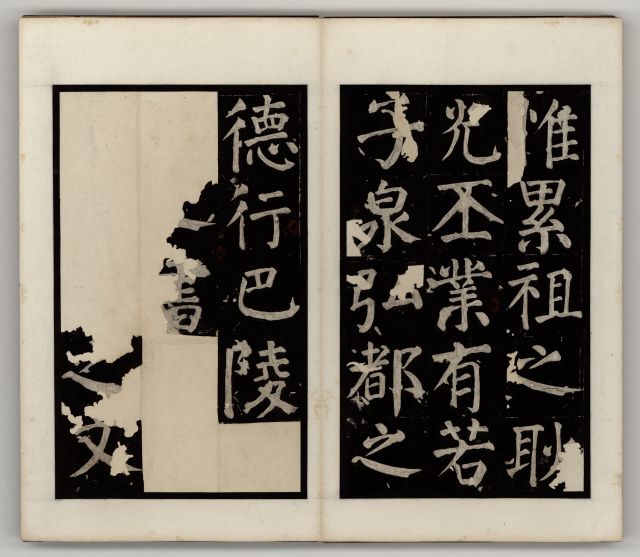 惟累祖之耿
光丕業有若
子泉弘都之
德行巴陵
書
之文